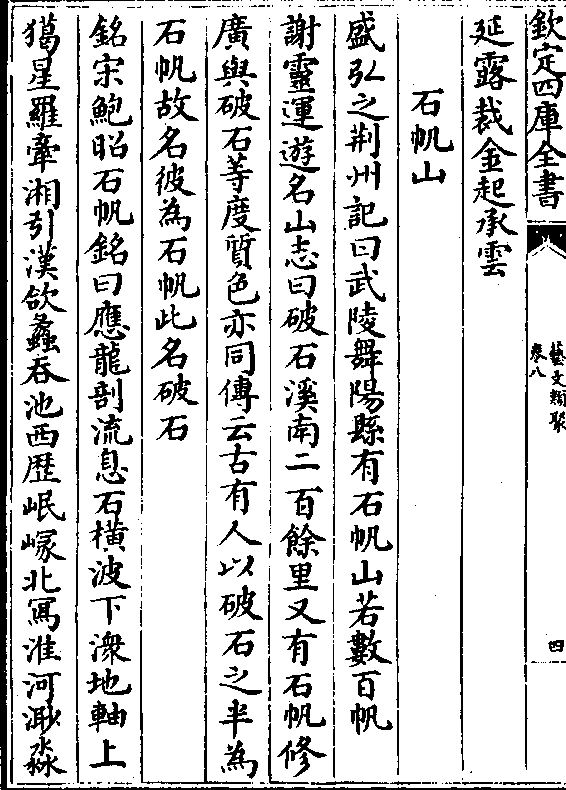 欽定四庫全書
藝文類聚
卷八
四
延露裁金起承雲
石帆山
盛弘之荆州記曰武陵舞陽縣有石帆山若數百帆
謝靈運遊名山志曰破石溪南二百餘里又有石帆修
廣與破石等度質色亦同傳云古有人以破石之半為
石帆故名彼為石帆此名破石
銘宋鮑昭石帆銘曰應龍剖流息石横波下潨地軸上
獦星羅牽湘引漢歛蠡吞池西歴岷嶓北冩淮河渺淼